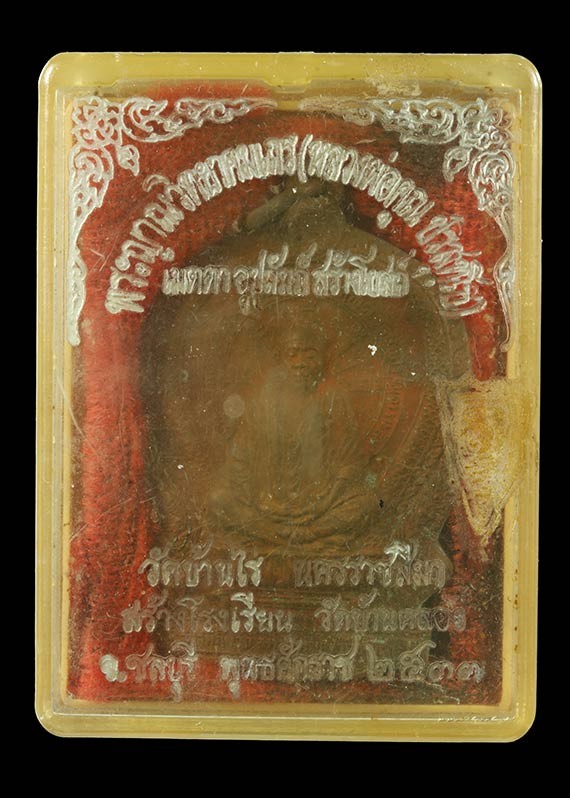 พระญาณวิทยาคมเถร (หลวงพ่อคูณ ปริสุทโธ)
เมตตา อุปถัมภ์ สร้าง
วัดบ้านไร่ นครราชสีมา
สร้างโรงเรียน วัดบ้านคลอง
จ.ชลบุรี พุทธศักราช ๒๕๓๓